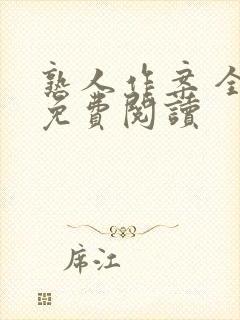 熟人作案全
免費閱讀
席江